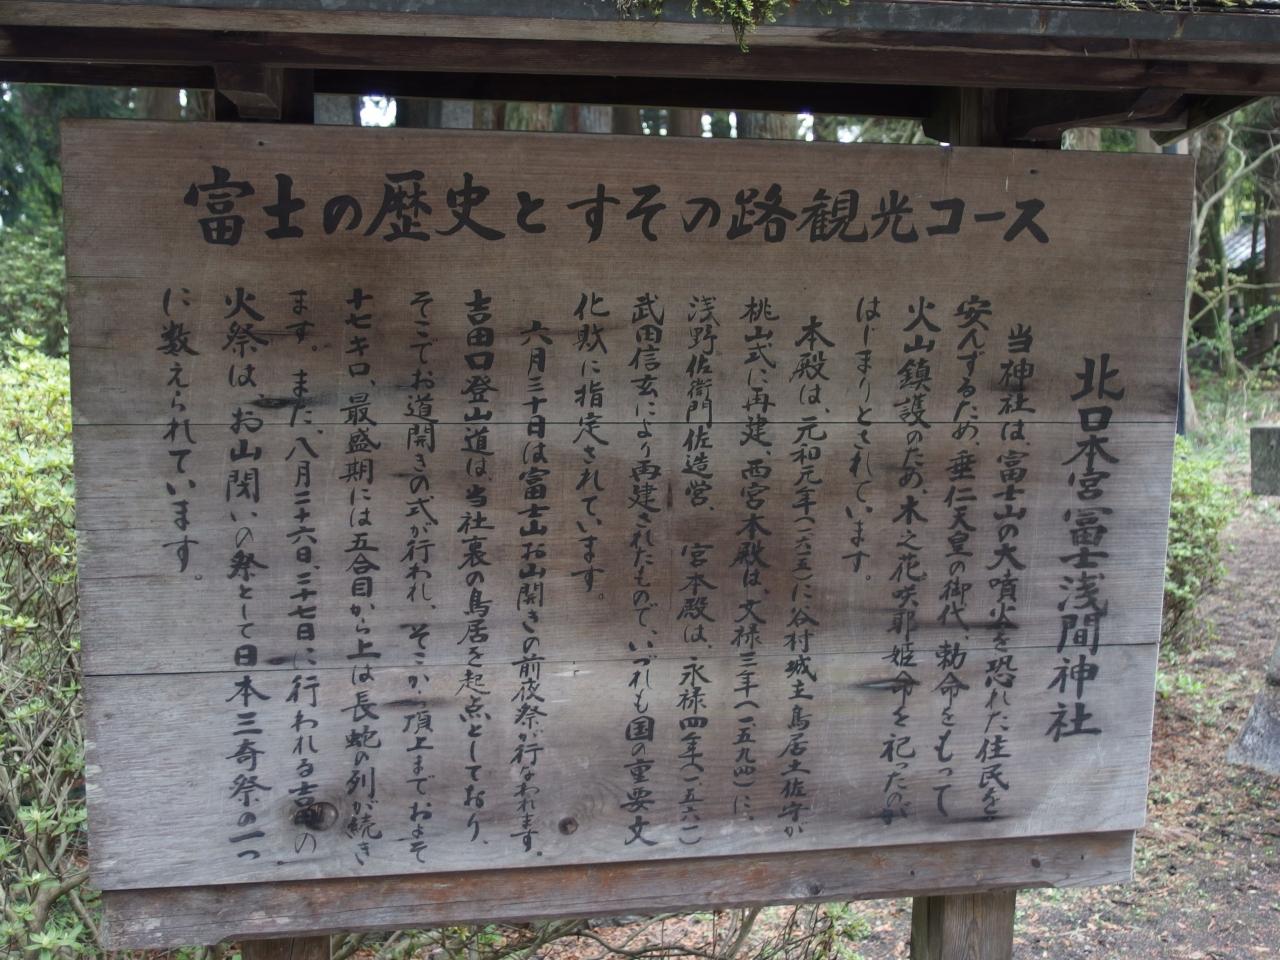 富士の歴史とすその路観光コース
北口本宮冨士浅間神社
当神社は、富士山の大噴火を恐れた住民を
安んずるため、垂仁天皇の御代、勅命をもって
火山鎮護のため、木之花咲耶姫命を祀ったのが
はじまりとされています。
本殿は、元和元年(一六一五)に谷村城主鳥居土佐守が
桃山式に再建、西宮本殿は、文禄三年(一五九四)に、
浅野佐衛門佐造営、 宮本殿は、永禄四年(一五六一)
武田信玄により再建されたもので、いづれも国の重要文
化財に指定されています。
六月三十日は富士山お山開きの前夜祭が行なわれます。
吉田口登山道は、当社裏の鳥居を起点としており、
そこでお道開きの式が行われ、そこから頂上までおよそ
十七キロ、最盛期には五合目から上は長蛇の列が続き
ます。また、八月二十六日、二十七日に行われる吉田の
火祭は、お山閉いの祭として日本三奇祭の一つ
に数えられています。